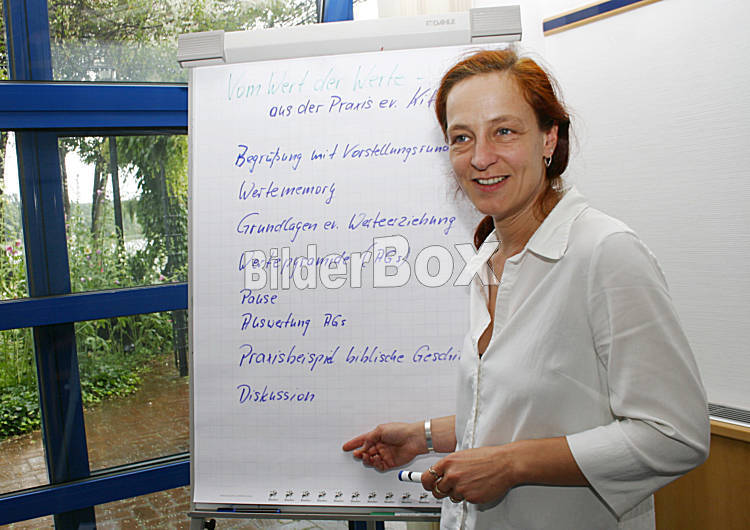 DAHLE
Vom Wert der Werte -
aus der Praxis ev. Kit
Begrüßung mit Vorstellungsrun
Wertememory
Grundlagen ev. Werteerziehung
Wertepyramide (AGs)
BilderBox
Pause
Auswertung AGs
Praxisbeispiel biblische Geschi
Diskussion